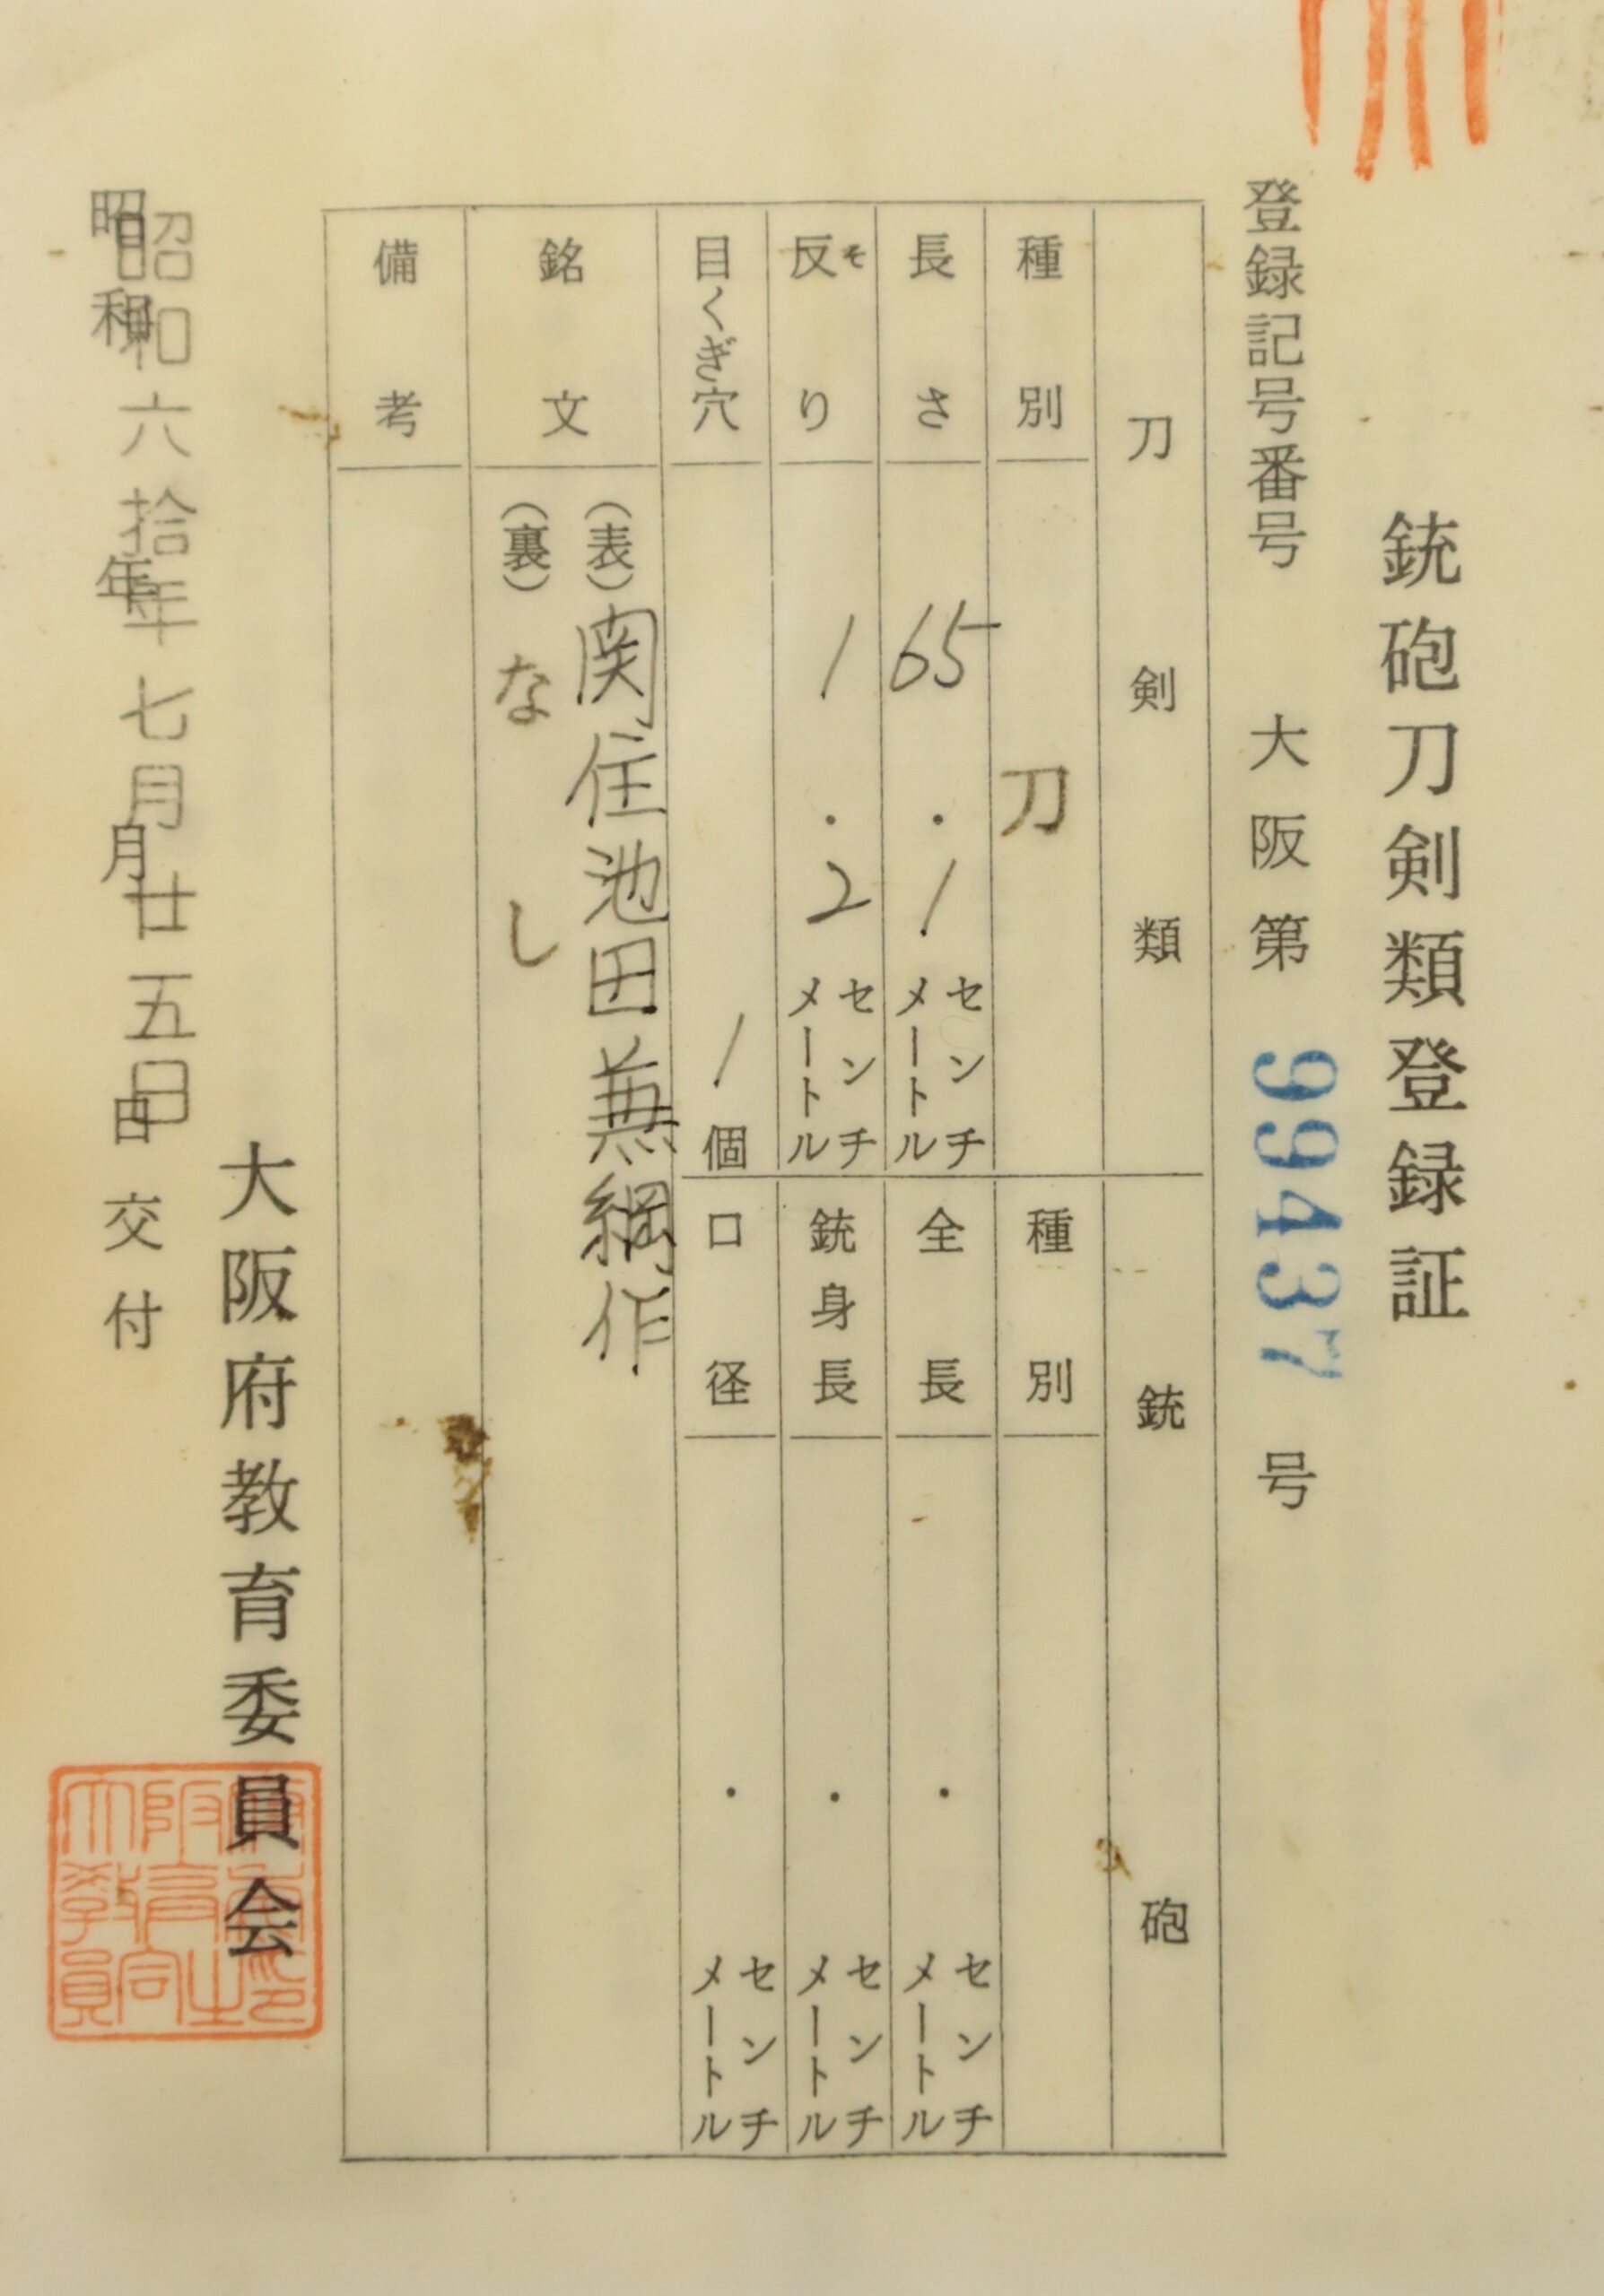 銃砲刀剣類登録証
登録記号番号 大阪第 99437 号
刀剣類
種別 刀
長さ 65.1 センチメートル
反り 1.2 センチメートル
そ
目くぎ穴 1 個
銘文 (表) 関住池田兼綱作
(裏) なし
備考
銃砲
種別
全長 . センチメートル
銃身長 . センチメートル
口径 . センチメートル
大阪府教育委員会
昭和六拾年七月廿五日
昭和 年 月 日 交付